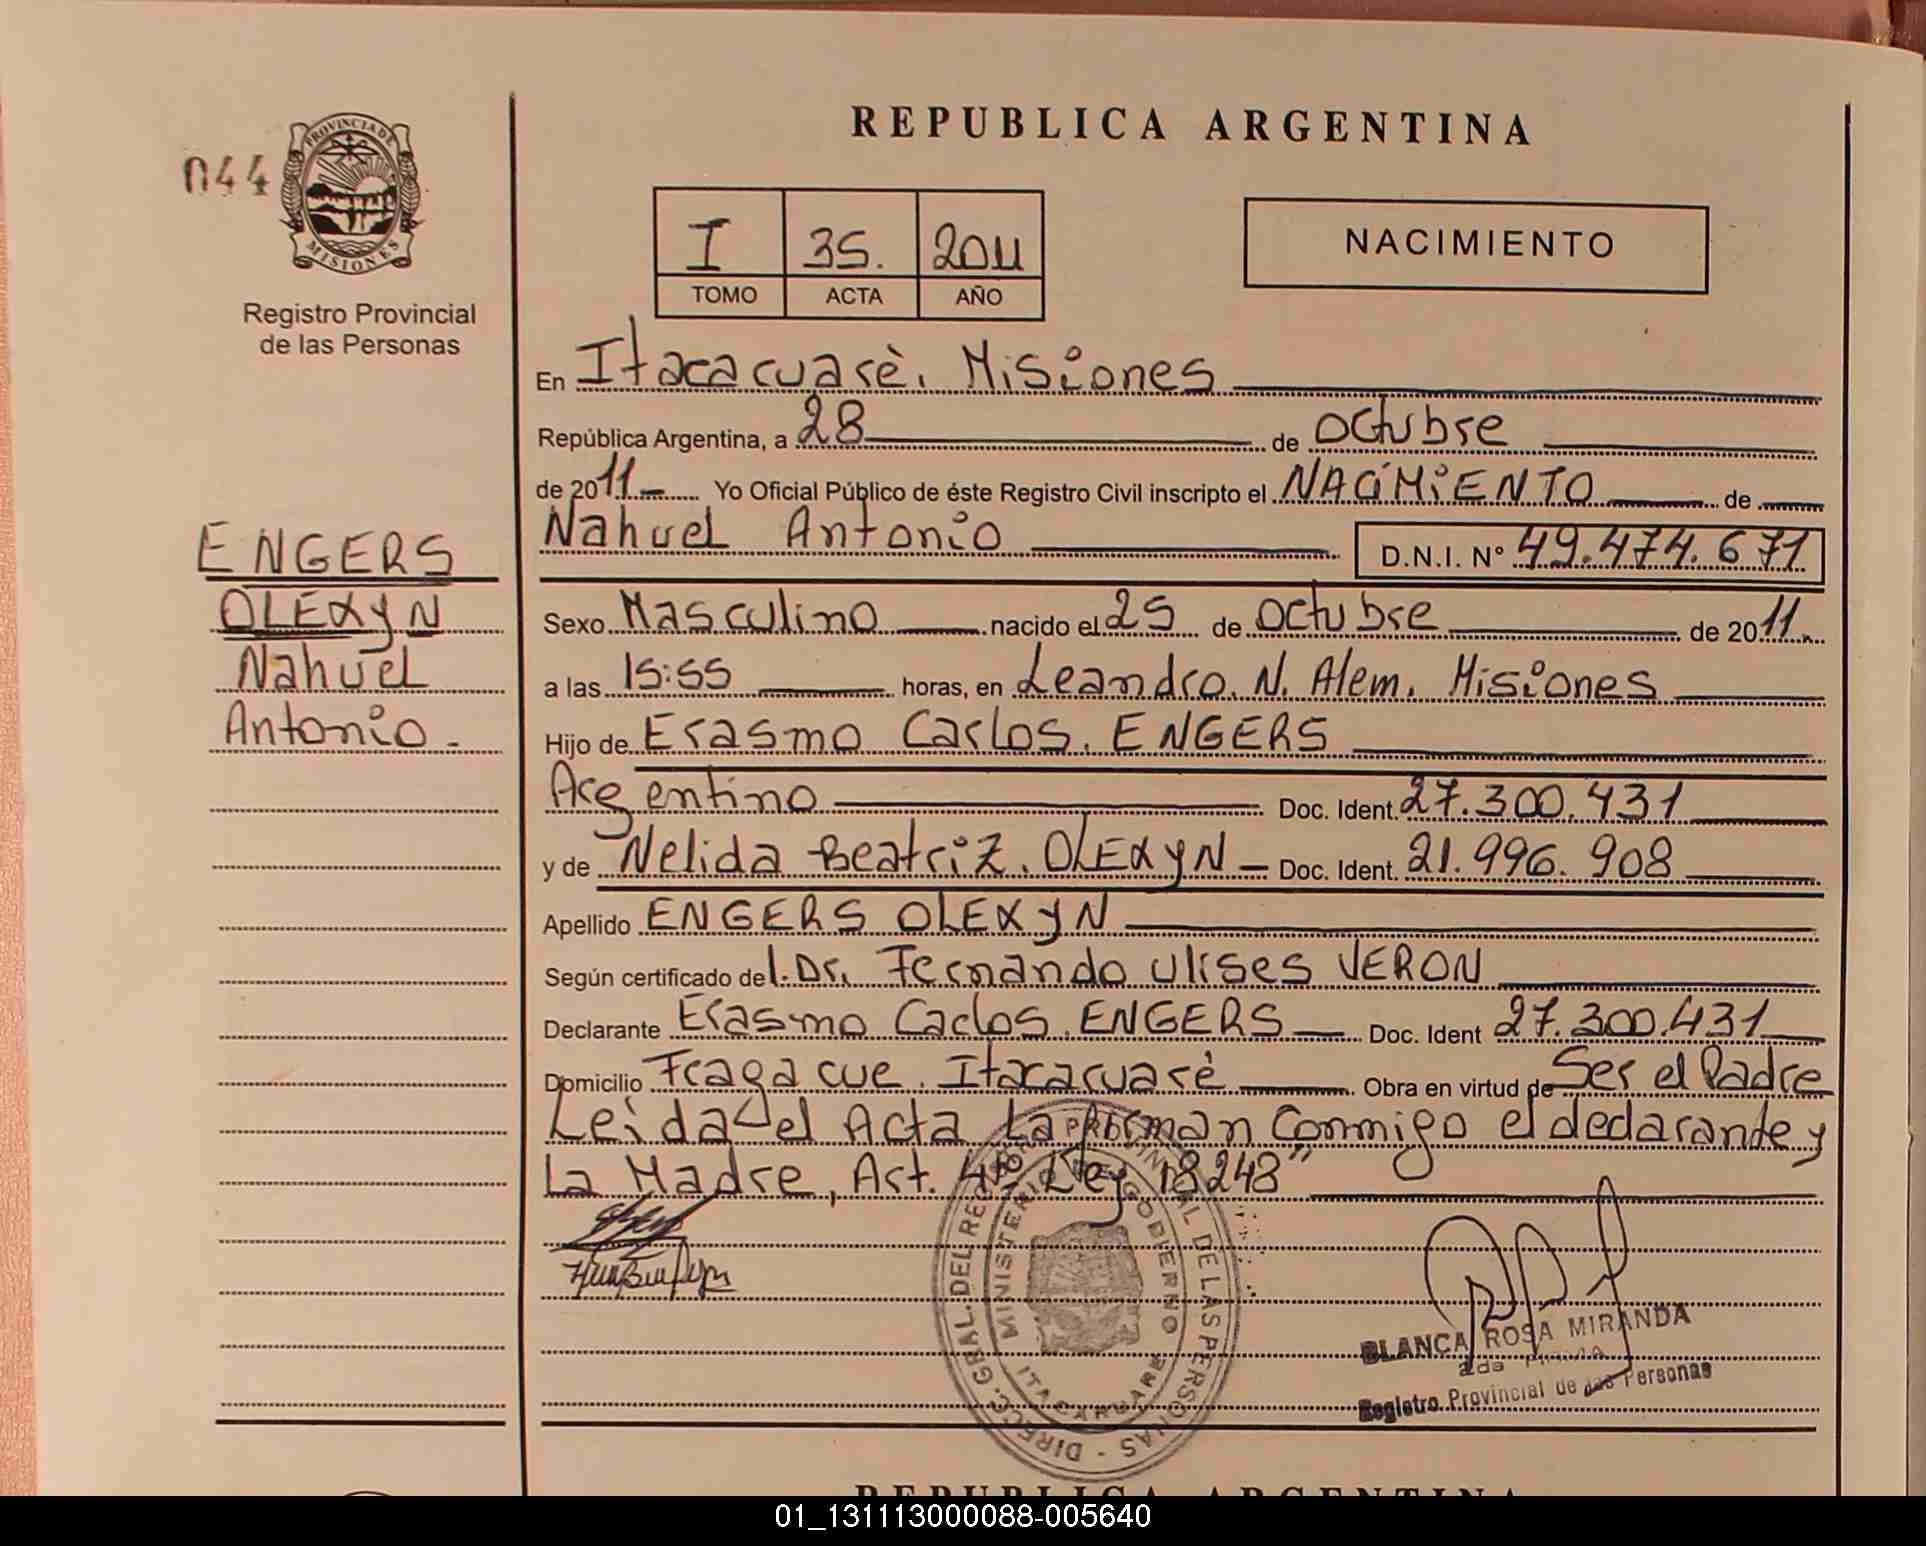 044
PROVINCIA DE
MISIONES
Registro Provincial
de las Personas
ENGERS
OLEXYN
Nahuel
Antonio.-
REPUBLICA ARGENTINA
I 35. 2011
TOMO ACTA AÑO
NACIMIENTO
En Itacaruarè. Misiones
República Argentina, a 28 de Octubre
de 2011.- Yo Oficial Público de éste Registro Civil inscripto el NACIMIENTO de
Nahuel Antonio D.N.I. N° 49.474.671
Sexo Masculino nacido el 25 de Octubre de 2011.
a las 15:55 horas, en Leandro. N. Alem. Misiones
Hijo de Erasmo Carlos. ENGERS
Argentino Doc. Ident. 27.300.431
y de Nelida Beatriz. OLEXYN - Doc. Ident. 21.996.908
Apellido ENGERS OLEXYN
Según certificado del. Dr. Fernando Ulises VERON
Declarante Erasmo Carlos. ENGERS Doc. Ident 27.300.431
Domicilio Fraga cue. Itacaruarè Obra en virtud de Ser el Padre
Leida el Acta La firman Conmigo el declarante y
La Madre, Art. Ley 18248"
DIRECC. GRAL. DEL REG. PROVINCIAL DE LAS PERSONAS -
MINISTERIO DE GOBIERNO
ITACARUARE
BLANCA ROSA MIRANDA
2da FIRMA
Registro Provincial de las Personas
REPUBLICA ARGENTINA
01_131113000088-005640